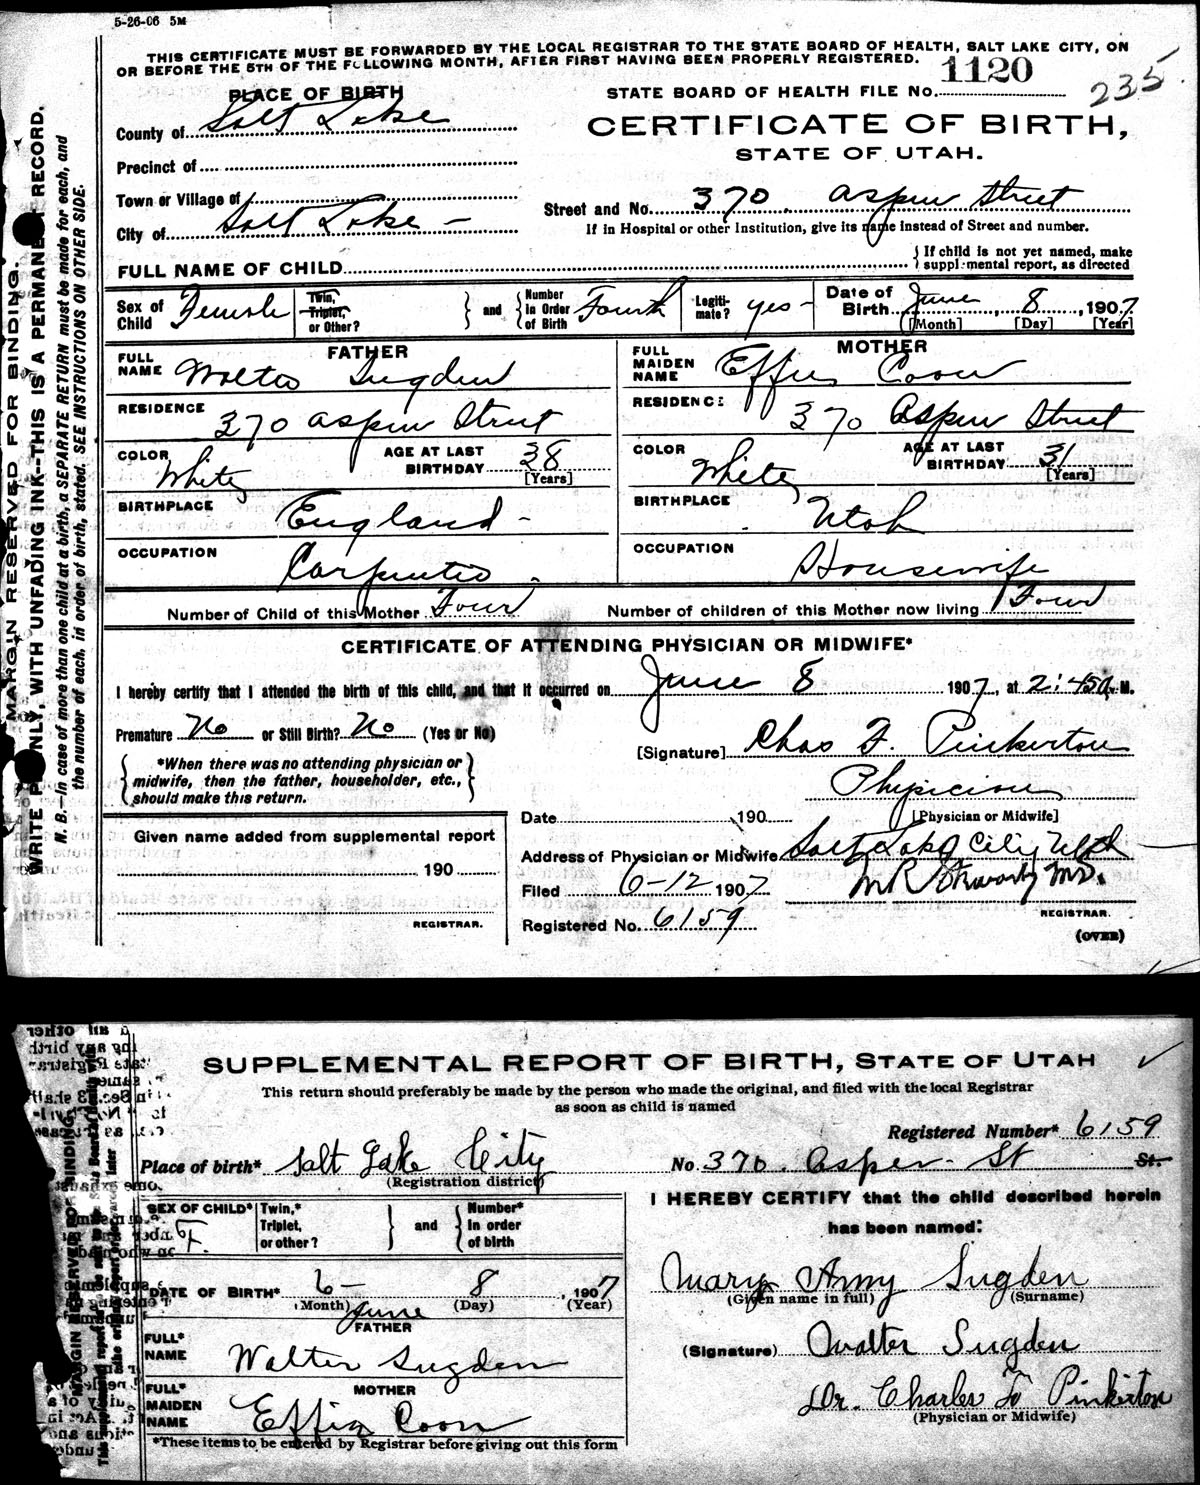 5-26-06 5M
THIS CERTIFICATE MUST BE FORWARDED BY THE LOCAL REGISTRAR TO THE STATE BOARD OF HEALTH, SALT LAKE CITY, ON
OR BEFORE THE 5TH OF THE FOLLOWING MONTH, AFTER FIRST HAVING BEEN PROPERLY REGISTERED.
1120
235
STATE BOARD OF HEALTH FILE No.
PLACE OF BIRTH
County of Salt Lake
CERTIFICATE OF BIRTH,
STATE OF UTAH.
Precinct of
Town or Village of
Street and No. 370 Aspen Street
City of Salt Lake
If in Hospital or other Institution, give its name instead of Street and number.
FULL NAME OF CHILD
If child is not yet named, make
supplemental report, as directed
Sex of Child Female
Twin, Triplet, or Other?
and
Number In Order of Birth Fourth
Legitimate? yes
Date of Birth June 8, 1907
[Month] [Day] [Year]
FATHER
FULL NAME Walter Sugden
RESIDENCE 370 Aspen Street
COLOR White
AGE AT LAST BIRTHDAY 38 [Years]
BIRTHPLACE England
OCCUPATION Carpenter
MOTHER
FULL MAIDEN NAME Effie Coon
RESIDENCE 370 Aspen Street
COLOR White
AGE AT LAST BIRTHDAY 31 [Years]
BIRTHPLACE Utah
OCCUPATION Housewife
Number of Child of this Mother Four
Number of children of this Mother now living Four
CERTIFICATE OF ATTENDING PHYSICIAN OR MIDWIFE*
I hereby certify that I attended the birth of this child, and that it occurred on June 8 1907, at 2:45 A. M.
Premature No or Still Birth? No (Yes or No)
[Signature] Chas F. Pinkerton
*When there was no attending physician or
midwife, then the father, householder, etc.,
should make this return.
Physician
[Physician or Midwife]
Date 190
Given name added from supplemental report
190
REGISTRAR.
Address of Physician or Midwife Salt Lake City Utah
Filed 6-12 1907
M.D.
REGISTRAR.
Registered No. 6159
(OVER)
MARGIN RESERVED FOR BINDING.
WRITE PLAINLY, WITH UNFADING INK--THIS IS A PERMANENT RECORD.
N. B.—In case of more than one child at a birth, a SEPARATE RETURN must be made for each, and
the number of each, in order of birth, stated. SEE INSTRUCTIONS ON OTHER SIDE.
SUPPLEMENTAL REPORT OF BIRTH, STATE OF UTAH
This return should preferably be made by the person who made the original, and filed with the local Registrar
as soon as child is named
Registered Number* 6159
Place of birth* Salt Lake City
No. 370 Aspen St St.
(Registration district)
SEX OF CHILD* F.
Twin,* Triplet, or other?
and
Number* In order of birth
I HEREBY CERTIFY that the child described herein
has been named:
DATE OF BIRTH* 6- 8, 1907
(Month) (Day) (Year)
June
Mary Amy Sugden
(Given name in full) (Surname)
FATHER
FULL* NAME Walter Sugden
(Signature) Walter Sugden
MOTHER
FULL* MAIDEN NAME Effie Coon
Dr. Charles F. Pinkerton
(Physician or Midwife)
*These items to be entered by Registrar before giving out this form